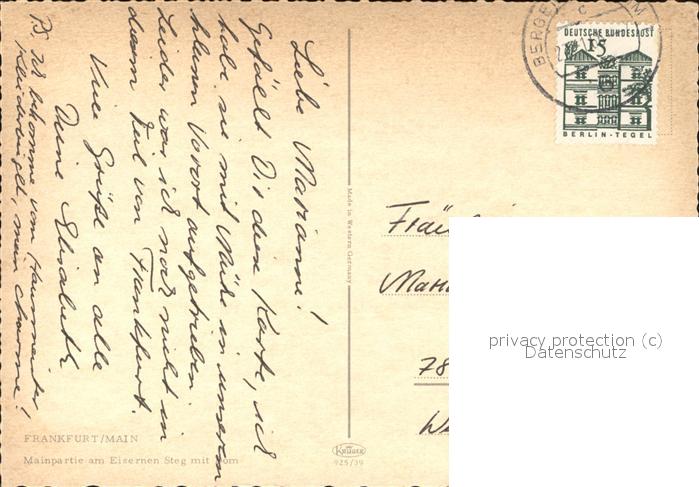 Liebe Marianne!
Gefällt Dir diese Karte, ich
habe sie mit Mühe in unserem
kleinen Vorort aufgetrieben.
Leider war ich noch nicht in
diesem Teil von Frankfurt.
Viele Grüße an alle
Deine Elisabeth
PS. Ich bekomme vom Hausmeister
, mein
FRANKFURT/MAIN
Mainpartie am Eisernen Steg mit Dom
Made in Western Germany
Krüger
925/39
BERGE
DEUTSCHE BUNDESPOST
15
BERLIN-TEGEL
Fräu
Mari
78
We
privacy protection (c)
Datenschutz